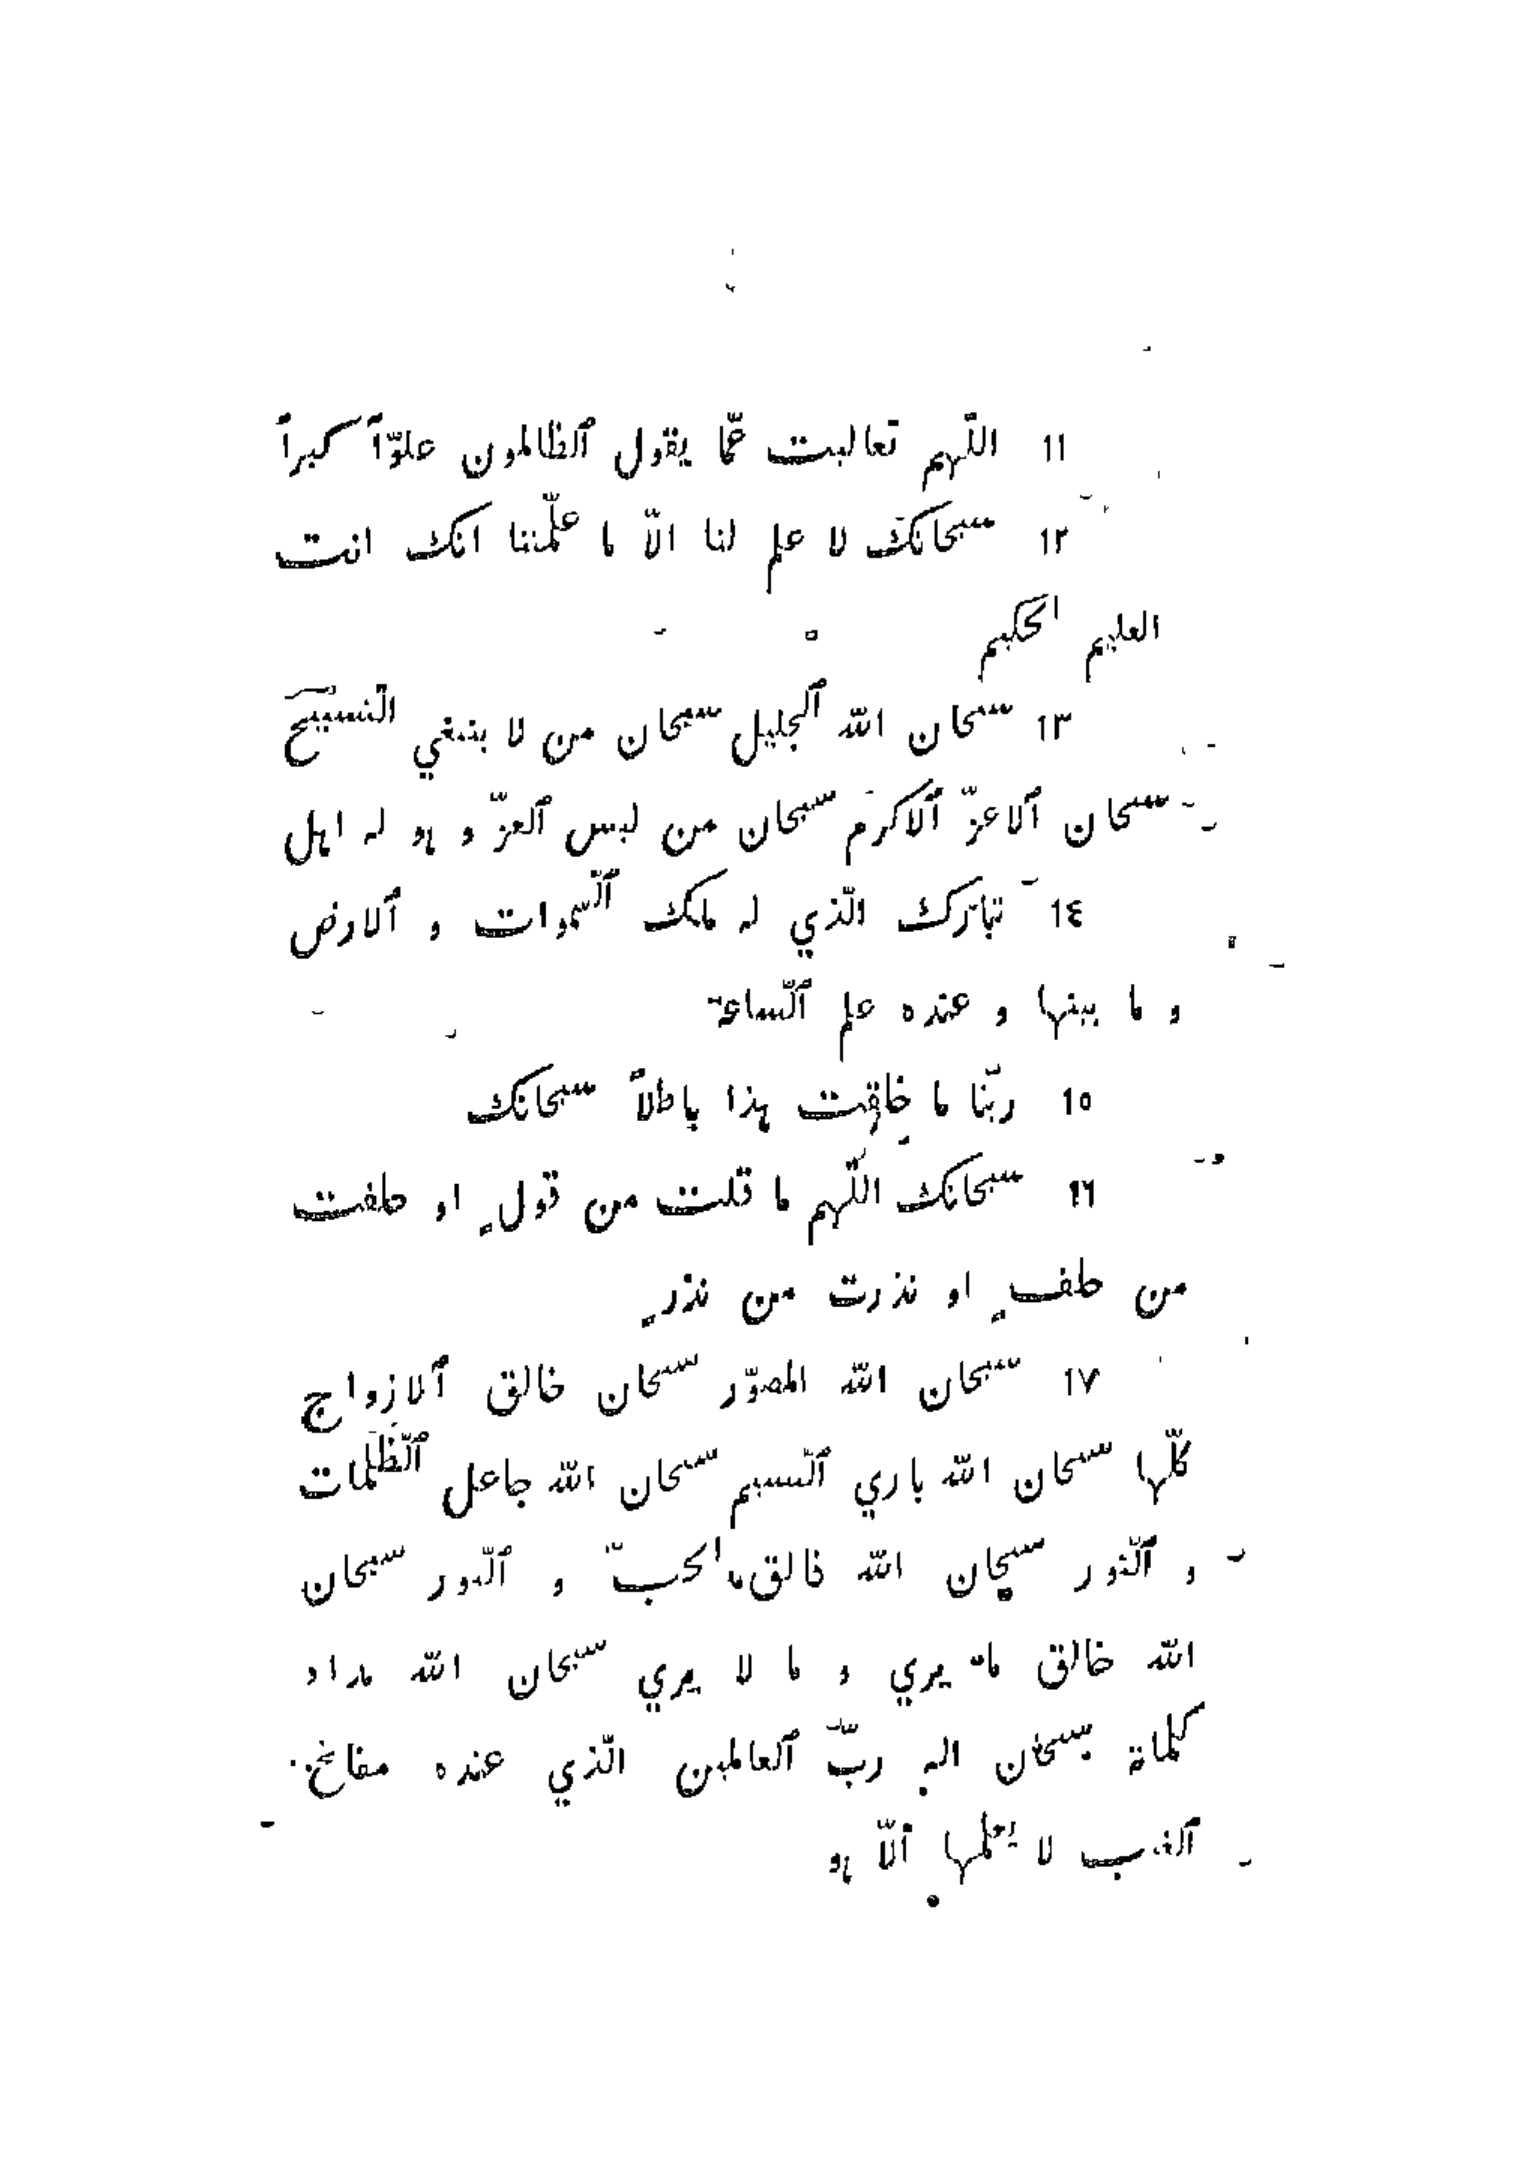 ١١ اللّهم تعاليت عمّا يقول ٱلظالمون علوّاً كبيراً
١٢ سبحانكَ لا علم لنا الاّ ما علّمتنا انك انت
العليم الحكيم
١٣ سبحان الله ٱلجليل سبحان من لا ينبغي التسبيح
سبحان ٱلاعزّ ٱلاكرم سبحان من لبس ٱلعزّ و هو له اهل
١٤ تبارك الّذي له ملك ٱلسّموات و ٱلارض
و ما بينها و عنده علم ٱلسّاعة
١٥ ربّنا ما خلقت هذا باطلاً سبحانك
١٦ سبحانك اللّهم ما قلت من قولٍ او حلفت
من حلفٍ او نذرت من نذرٍ
١٧ سبحان الله المصوّر سبحان خالق ٱلازواج
كلّها سبحان الله باري ٱلنّسيم سبحان الله جاعل ٱلظّلمات
و ٱلنّور سبحان الله فالق الحبّ و ٱلنّور سبحان
الله خالق ما يري و ما لا يري سبحان الله مداد
كلماته سبحان الله ربّ ٱلعالمين الّذي عنده مفاتح
ٱلغيب لا يعلمها ٱلاّ هو